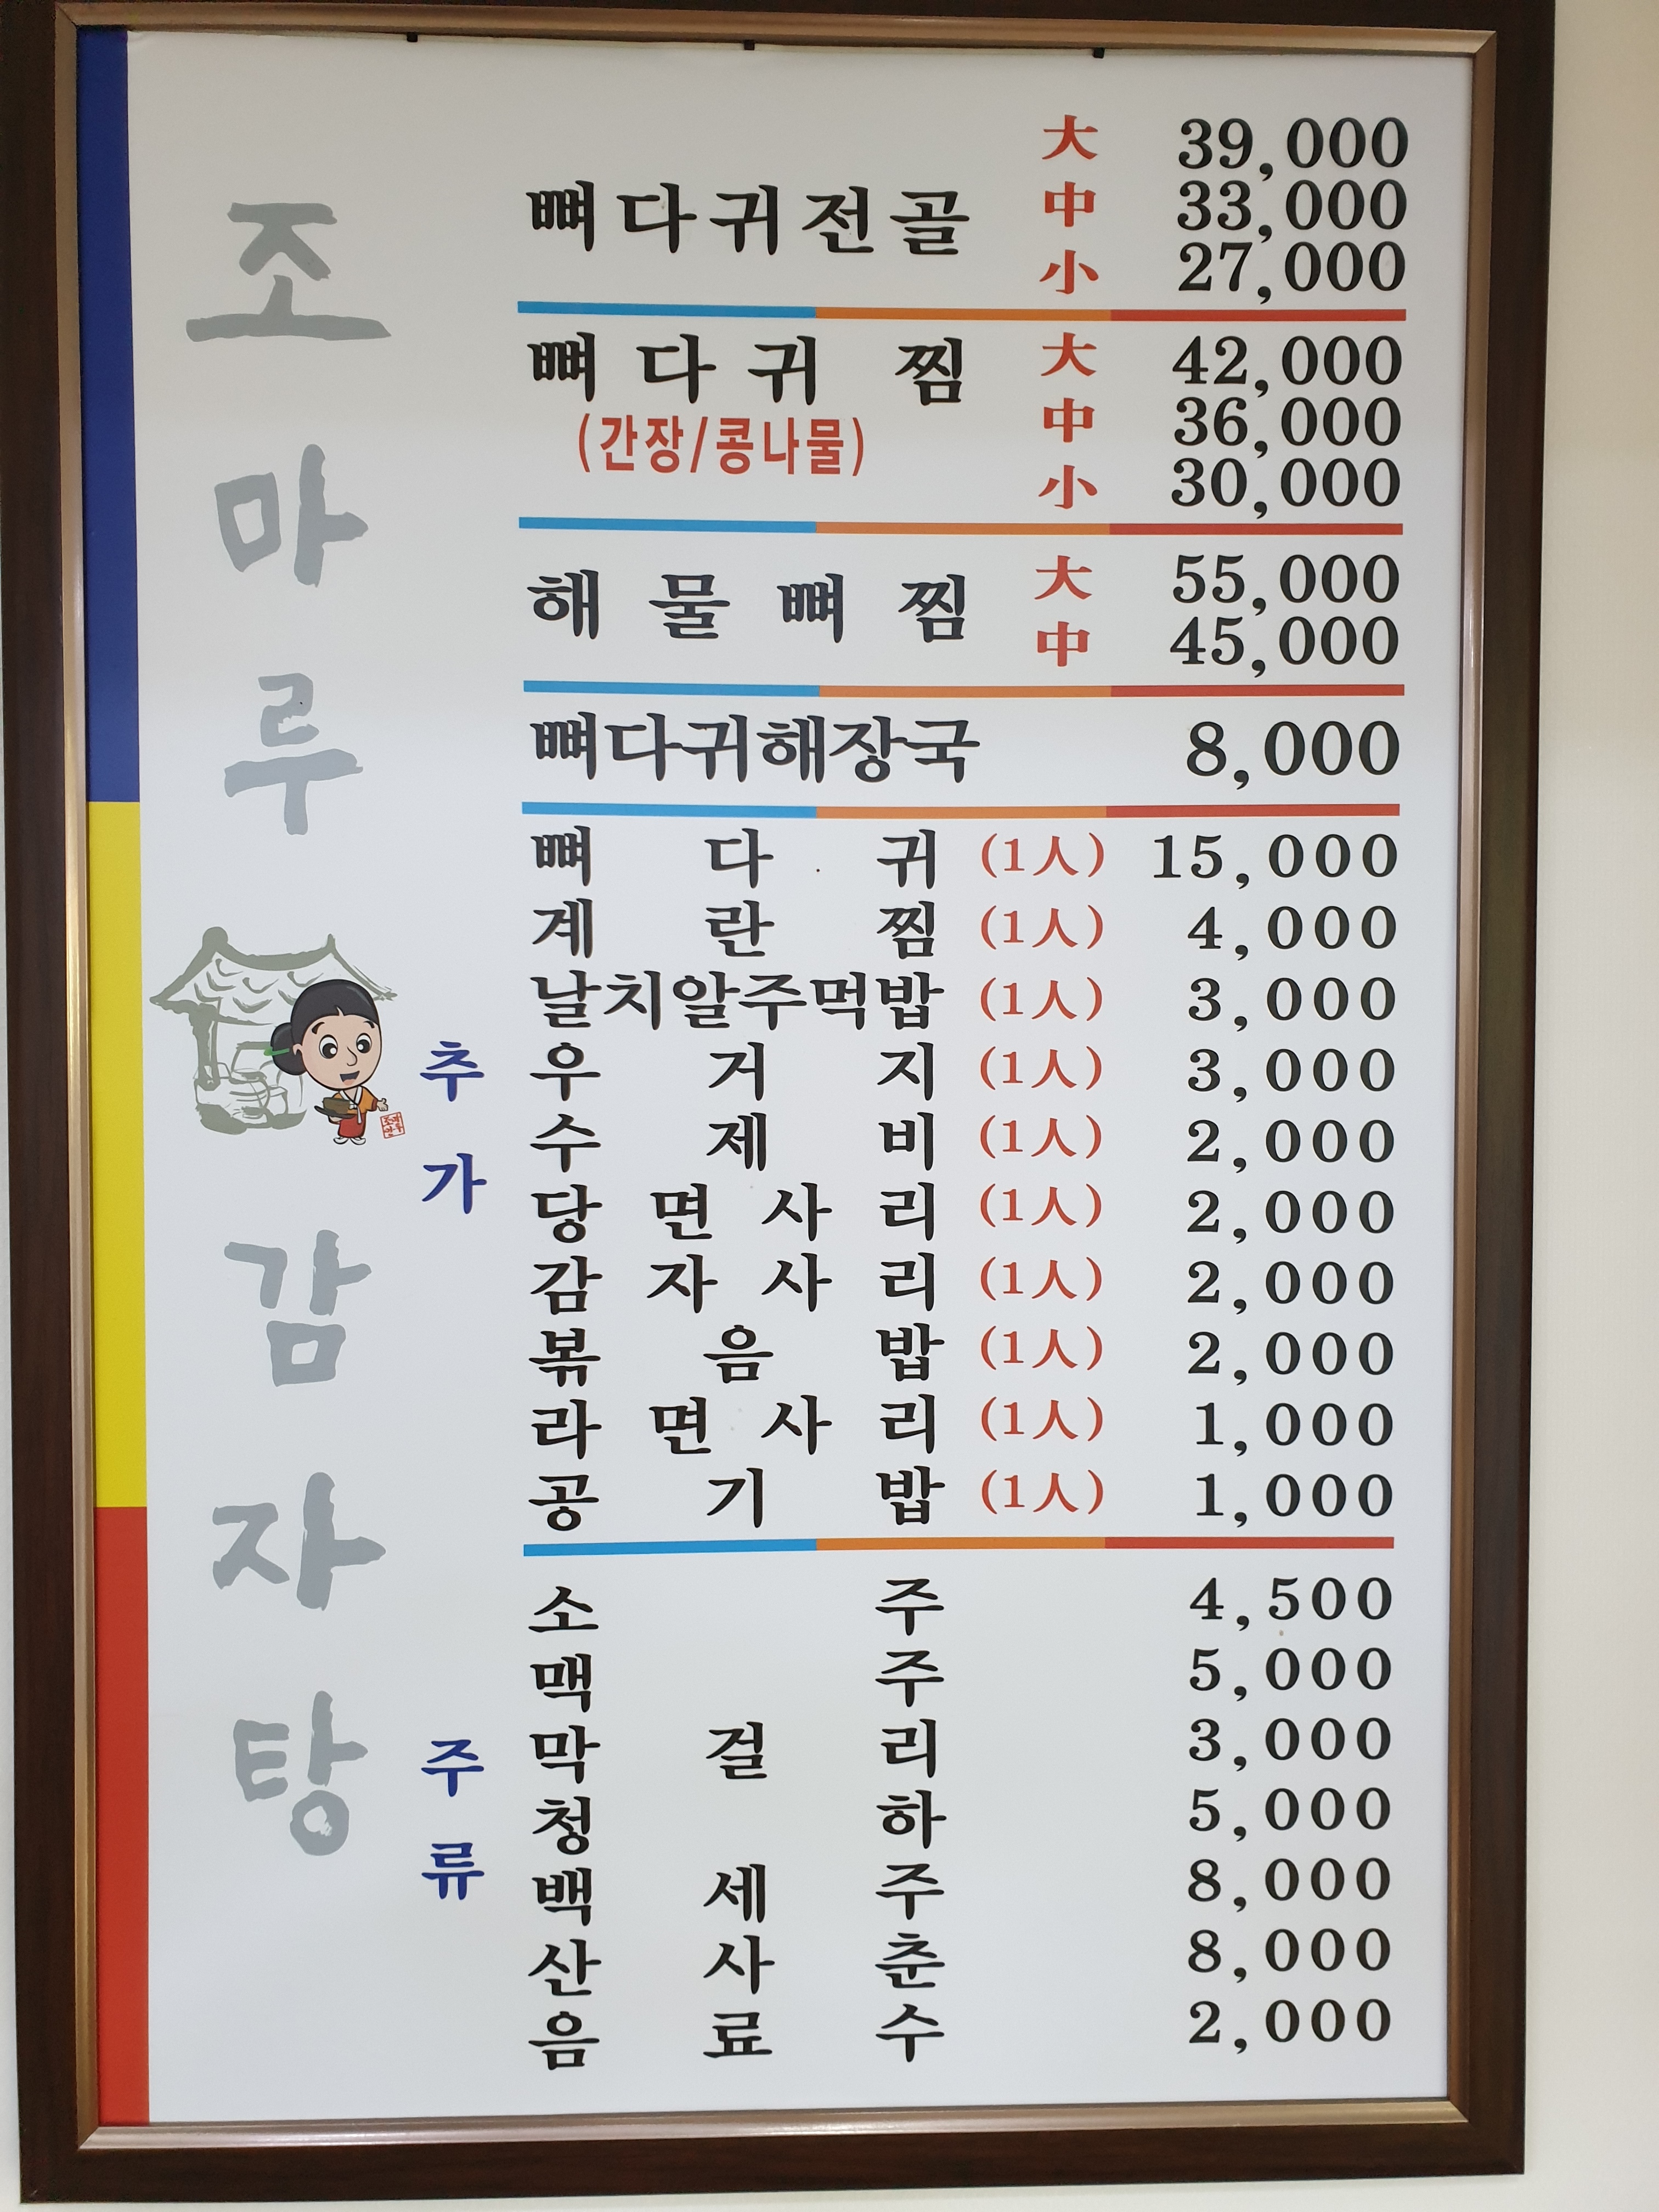 조마루감자탕
뼈다귀전골 大 39,000
中 33,000
小 27,000
뼈다귀찜 大 42,000
(간장/콩나물) 中 36,000
小 30,000
해물뼈찜 大 55,000
中 45,000
뼈다귀해장국 8,000
추가
뼈다귀 (1人) 15,000
계란찜 (1人) 4,000
날치알주먹밥 (1人) 3,000
우거지 (1人) 3,000
수제비 (1人) 2,000
당면사리 (1人) 2,000
감자사리 (1人) 2,000
볶음밥 (1人) 2,000
라면사리 (1人) 1,000
공기밥 (1人) 1,000
주류
소주 4,500
맥주 5,000
막걸리 3,000
청하 5,000
백세주 8,000
산사춘 8,000
음료수 2,000